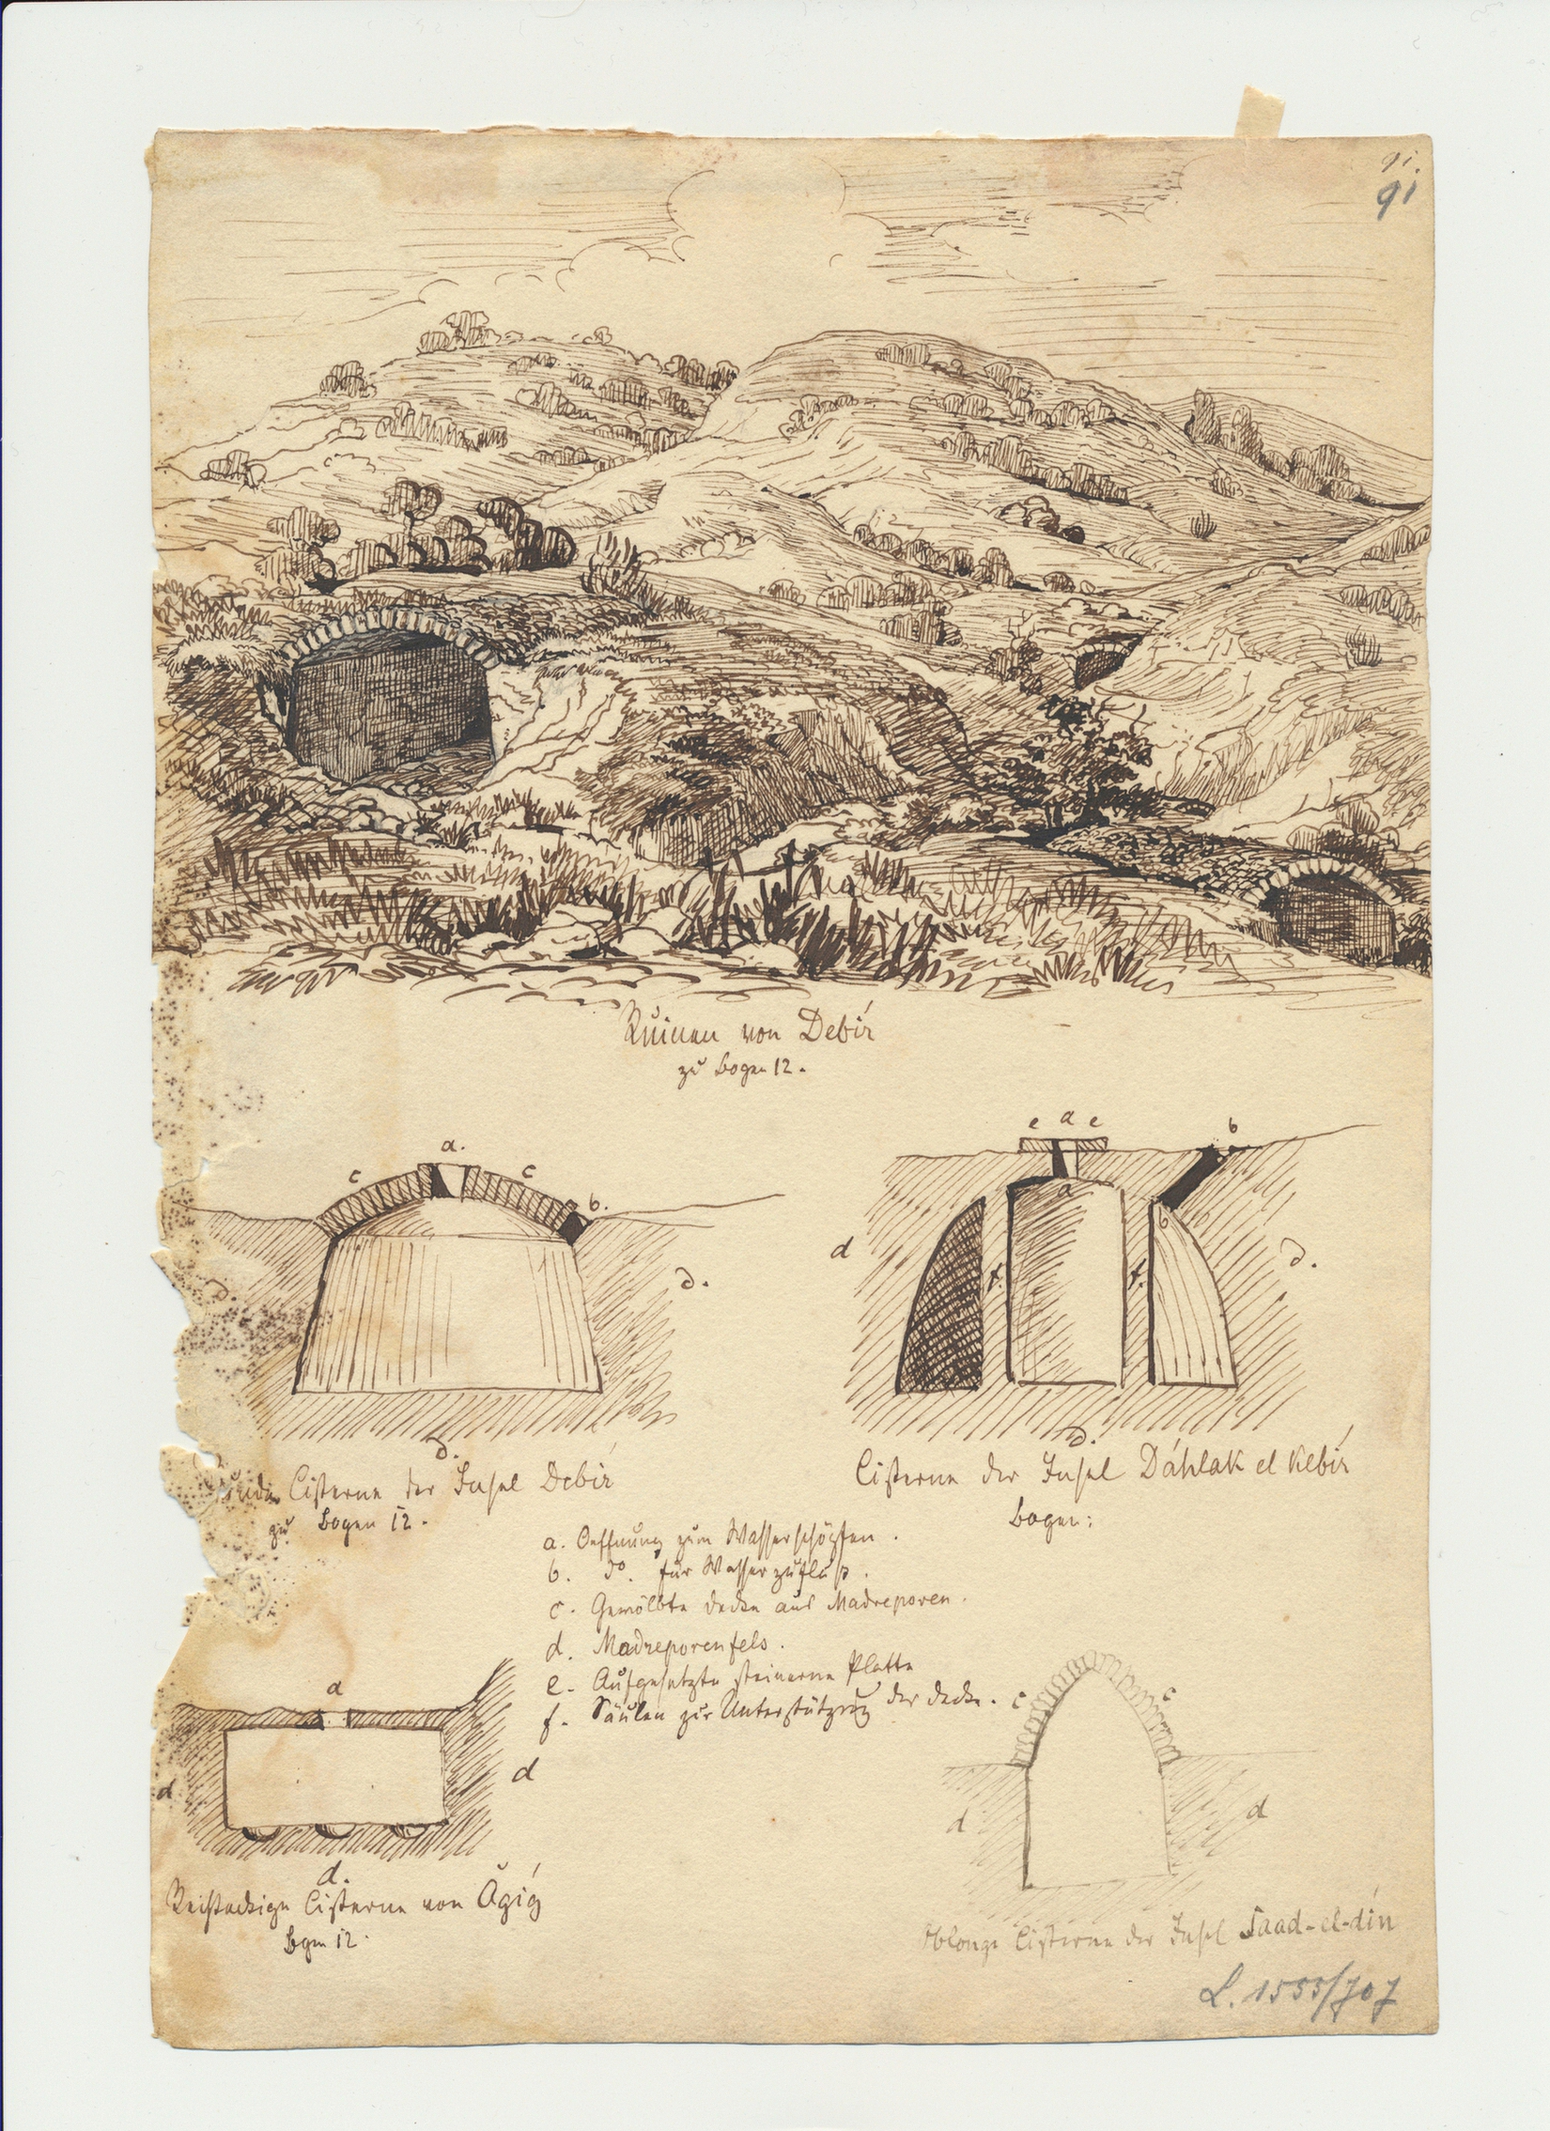 91.
91
Ruinen von Debír
zu Bogen 12.
a.
c
c
b.
d.
d.
d.
e a e
b
a
b
d
d.
f.
f.
d.
Runde Cisterne der Insel Debír
zu Bogen 12.
Cisterne der Insel Dáhlak el Kebír
Bogen:
a. Oeffnung zum Wasserschöpfen.
b. do. für Wasserzufluß.
c. Gewölbte Decke aus Madreporen.
d. Madreporenfels.
e. Aufgesetzte steinerne Platte
f. Säulen zur Unterstützung der Decke.
a
d
d
d.
c
c
d
d
Cisterne von Ăgíg
Bgen 12.
Oblonge Cisterne der Insel Saad-el-dín
L. 1555/707